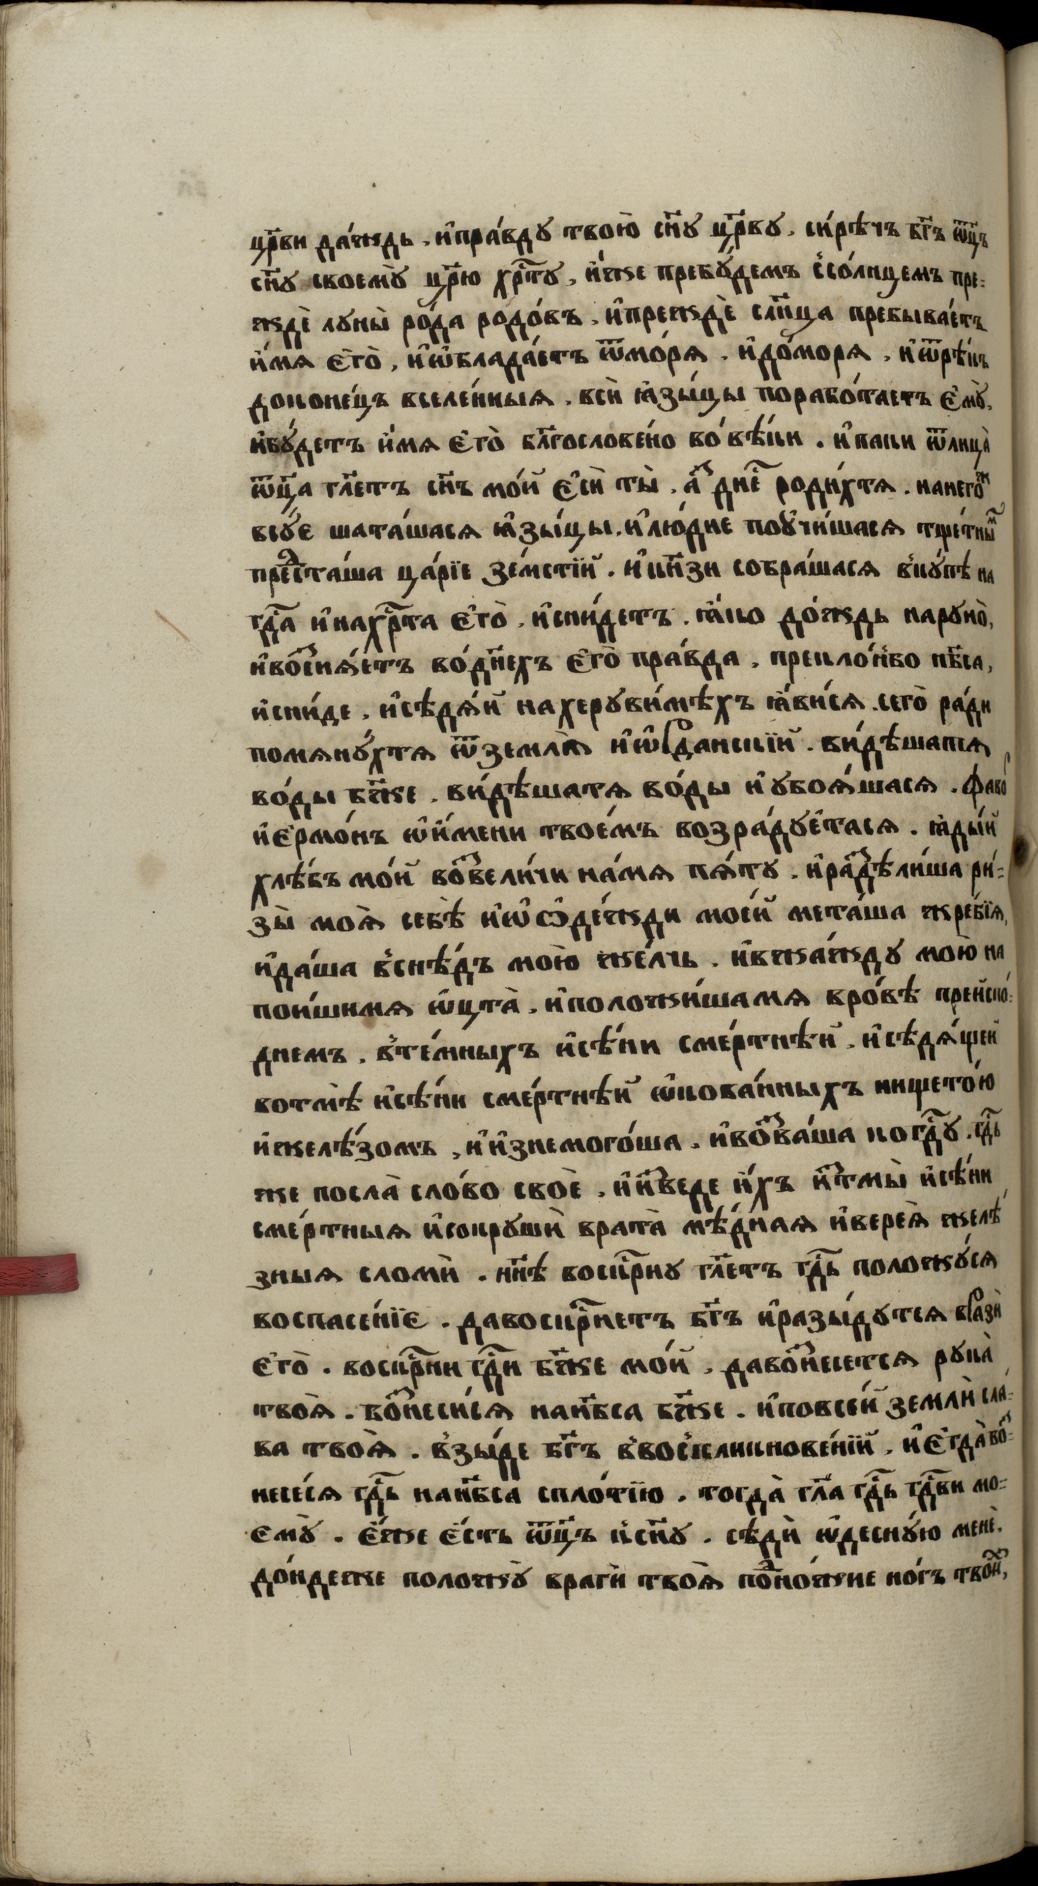 цр҃ви да́ждь , и҆пра́вду твою̀ сн҃у цр҃ву , си́рѣчъ бг҃ъ ѿц҃ъ
сн҃у своемꙋ̀ цр҃ю хрⷭ҇ту , и҆́же пребꙋ́демъ с҆со́лнцемъ пре=
ждѐ луны̀ ро́да родо́въ , и҆преждѐ слн҃ца пребыва́етъ
и҆́мя є҆го̀ , и҆ѡ҆блада́етъ ѿмо́ря , и҆до́моря , и҆ѿрѣ́къ
доконе́цъ вселе́нныя . всѝ ꙗ҆зы́цы порабо́таетъ є҆мꙋ̀,
и҆бꙋ́детъ и҆́мя є҆го̀ бл҃гослове́но во́вѣки . и҆паки ѿлица̀
ѿц҃а гл҃етъ сн҃ъ мо́й є҆сѝ ты̀ , а҆́зъ дн҃е́ роди́хтя . нанего́ж
всꙋ́е шата́шася ꙗ҆зы́цы , и҆лю́дие поꙋчи́шася тще́тным
предста́ша ца́рїе зе́мстїй . и҆кн҃зи собра́шася в҆кꙋ́пѣ на
гдⷭ҇а и҆нахрⷭ҇та є҆го̀ , и҆сни́детъ . ꙗ҆́ко до́ждь наруно̀,
и҆возсиѧ́етъ во́дн҃ехъ є҆го̀ пра́вда , прекло́нѝбо нб҃са,
и҆сни́де , и҆сѣдѧ́й нахеруви́мѣхъ ꙗ҆ви́ся . сего̀ ра́ди
помянꙋ́хтя ѿземля̀ и҆ѡ҆рда́нскїй . ви́дѣшатѧ
во́ды бж҃е . ви́дѣшатя во́ды и҆убоя́шася . ѳаво́р
и҆є҆рмо́нъ ѡ҆и҆́мени твое́мъ возра́дꙋетася . ꙗ҆ды́й
хлѣ́бъ мо́й возвели́чи на́мя пя́ту . и҆раздѣли́ша ри́=
зы̀ моѧ̀ себѣ̀ и҆ѡ҆ ѻ҆де́жди мое́й мета́ша жре́бїя,
и҆да́ша в҆снѣ́дъ мою̀ же́лчь . и҆вжа́жду мою̀ на
пои́шимя ѻ҆́цта̀ , и҆положи́шамя вро́вѣ преи́спо=
днемъ , в҆те́мныхъ и҆сѣ́ни сме́ртнѣй , и҆сѣдя́щей
вотмѣ̀ и҆сѣ́ни сме́ртнѣй ѡ҆кова́нныхъ нището́ю
и҆желѣ́зомъ , и҆и҆знемого́ша , и҆возва́ша когдⷭ҇у . гдⷭ҇ь
же посла̀ сло́во своѐ , и҆и҆зведе и҆́хъ и҆зтмы̀ и҆сѣ́ни
сме́ртныя и҆сокрушѝ врата̀ мѣ́дная и҆верея̀ желѣ́
зныя сломѝ . нн҃ѣ воскрⷭ҇ну гл҃етъ гдⷭ҇ь положꙋ́ся
воспасе́нїє . давоскрⷭ҇нетъ бг҃ъ и҆разы́дутся вразѝ
є҆го̀ . воскрⷭ҇ни гдⷭ҇и бж҃е мо́й , давознесе́тся рука̀
твоя̀ . вознеси́ся нанб҃са бж҃е . и҆повсе́й землѝ сла́=
ва твоя̀ . в҆зы́де бг҃ъ в҆воскликнове́нїй , и҆є҆гда̀воз=
несе́ся гдⷭ҇ь нанб҃са спло́тїю . тогда̀ гл҃а гдⷭ҇ь гдⷭ҇ви мо=
ємꙋ̀ . є҆́же є҆́сть ѿц҃ъ к҆сн҃у . сѣдѝ ѡ҆деснꙋ́ю менѐ.
до́ндеже положꙋ̀ врагѝ твоя̀ подно́жие но́гъ твои́х,